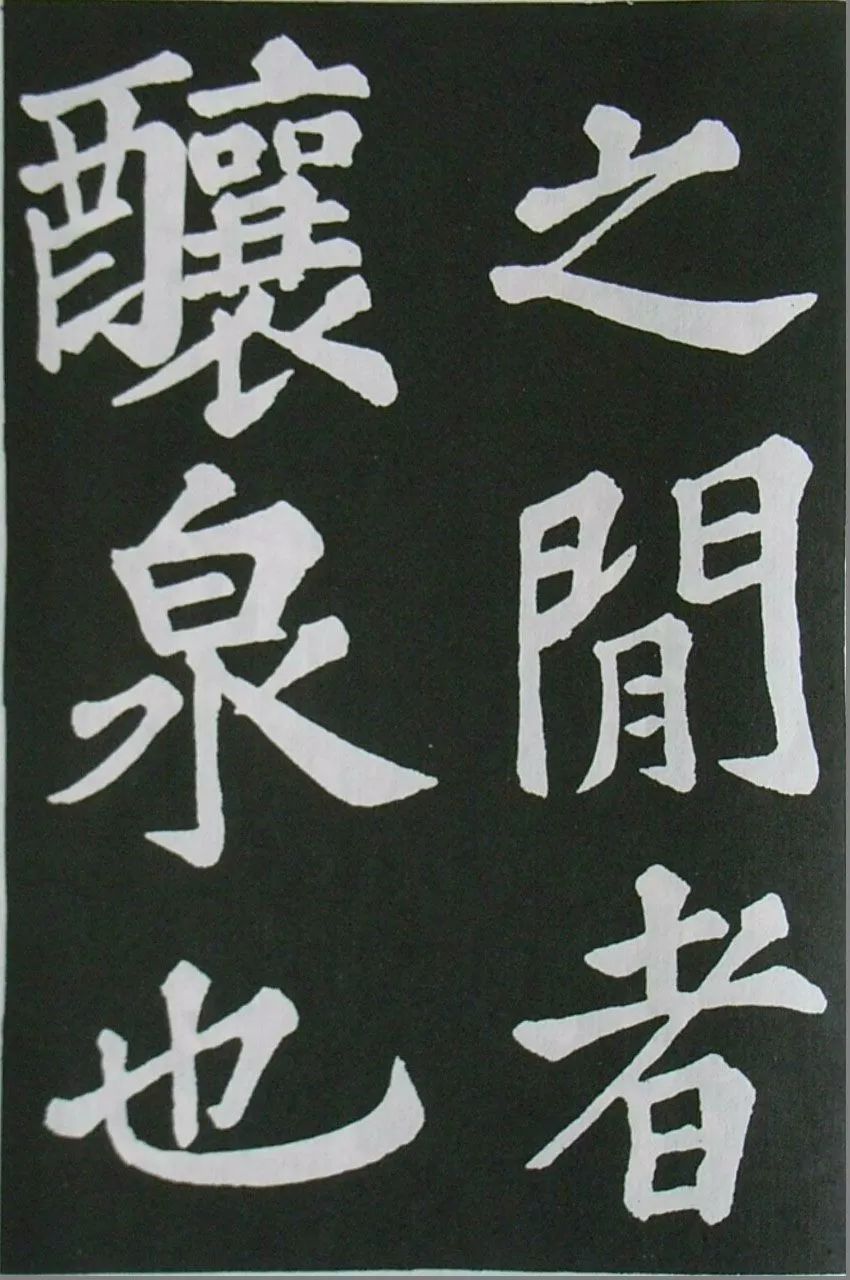 之閒者
釀泉也